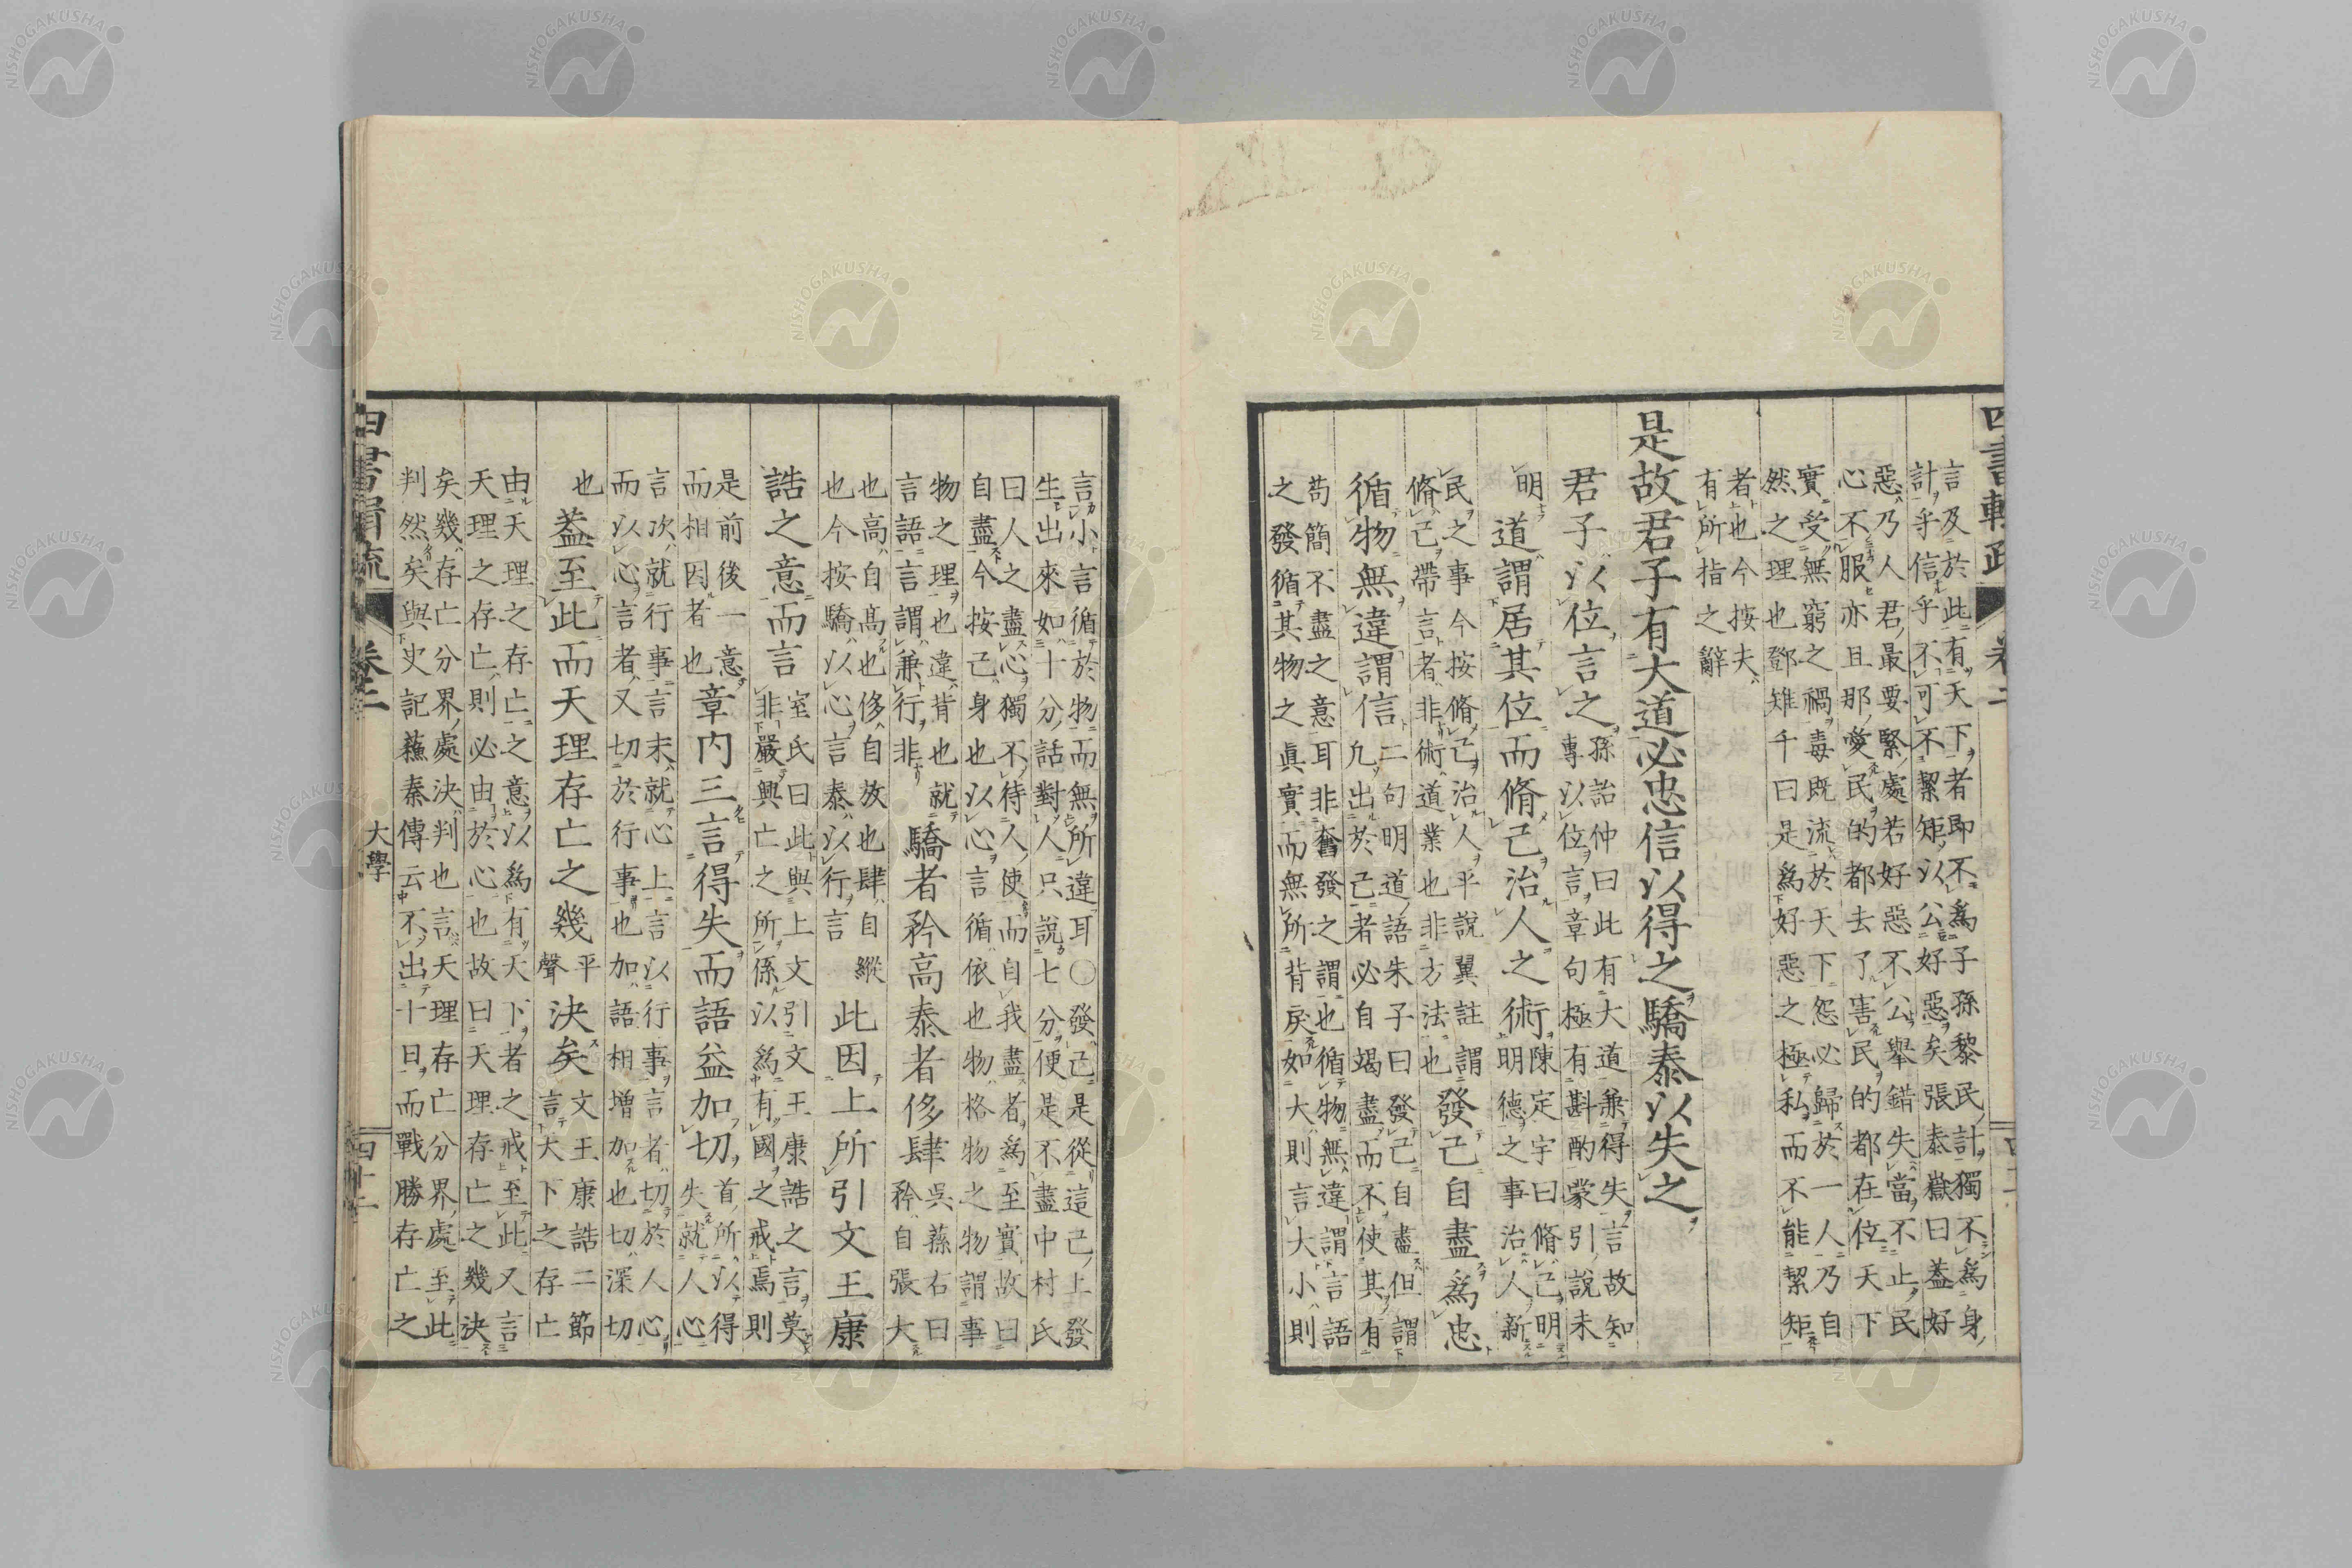 言及於此有天下者即不爲子孫黎民計獨不爲身
計乎信乎不可不絜矩以公好惡矣張泰嶽曰蓋好
惡乃人君最要緊處若好惡不公舉錯失當不止民
心不服亦且那愛民的都去了害民的都在位天下
實受無窮之禍毒既流於天下怨必歸於一人乃自
然之理也鄧雉千曰是爲好惡之極私而不能絜矩
者也今按夫
有所指之辭
是故君子有大道必忠信以得之驕泰以失之
君子以位言之
孫詒仲曰此有大道兼得失言故知
專以位言章句極有斟酌蒙引說未
明
道謂居其位而脩己治人之術
陳定宇曰脩己明
明德之事治人新
民之事今按脩己治人平說翼註謂
脩己帶言者非術道業也非方法也
發己自盡爲忠
循物無違謂信
二句明道語朱子曰發己自盡但謂
凡出於己者必自竭盡而不使其有
苟簡不盡之意耳非奮發之謂也循物無違謂言語
之發循其物之眞實而無所背戾如大則言大小則
言小言循於物而無所違耳○發己是從這己上發
生出來如十分話對人只說七分便是不盡中村氏
曰人之盡心獨不待人使而自我盡者爲至實故曰
自盡今按己身也以心言循依也物格物之物謂事
物之理也違背也就
言語言謂兼行非
驕者矜高泰者侈肆
吳蓀右曰
矜自張大
也高自高也侈自放也肆自縱
也今按驕以心言泰以行言
此因上所引文王康
誥之意而言
室氏曰此與上文引文王康誥之言莫
非嚴興亡之所係以爲有國之戒焉則
是前後一意
而相因者也
章内三言得失而語益加切
首所以得
失就人心
言次就行事言末就心上言以行事言者切於人心
而以心言者又切於行事也加語相增加也切深切
也
蓋至此而天理存亡之幾
平
聲
決矣
文王康誥二節
言天下之存亡
由天理之存亡之意以爲有天下者之戒至此又言
天理之存亡則必由於心也故曰天理存亡之幾決
矣幾存亡分界處決判也言天理存亡分界處至此
判然矣與史記蘇秦傳云不出十日而戰勝存亡之
大學